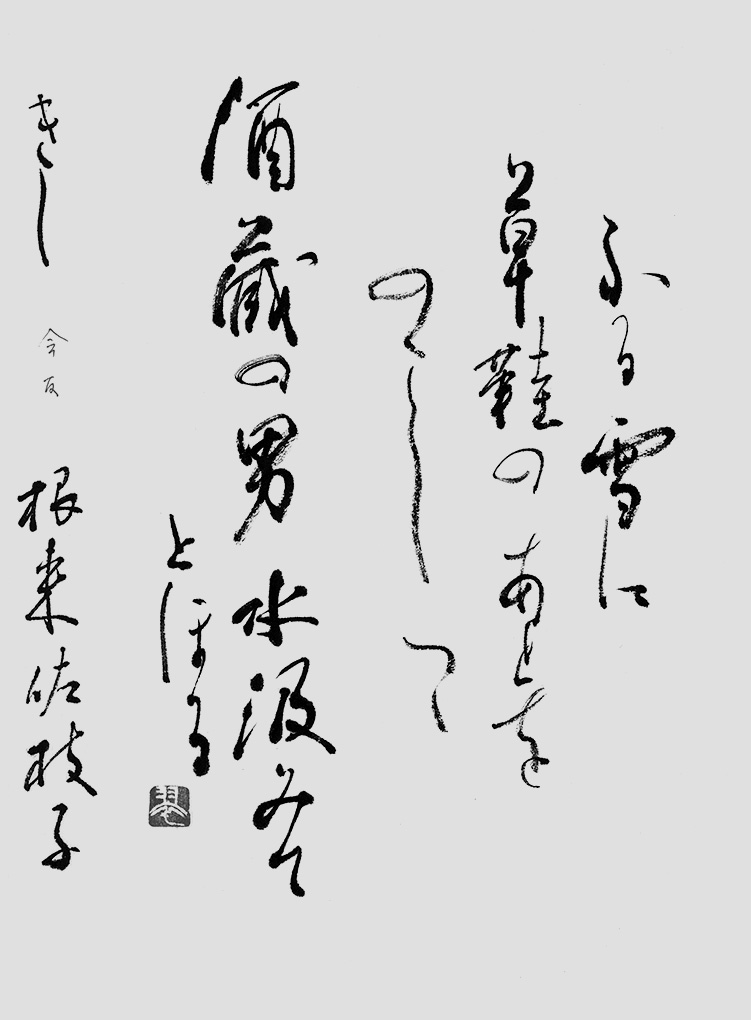 ふる雪に
草鞋のあとを
のこしつゝ
酒蔵の男 水汲みて
とほる
きし 根来佐枝子